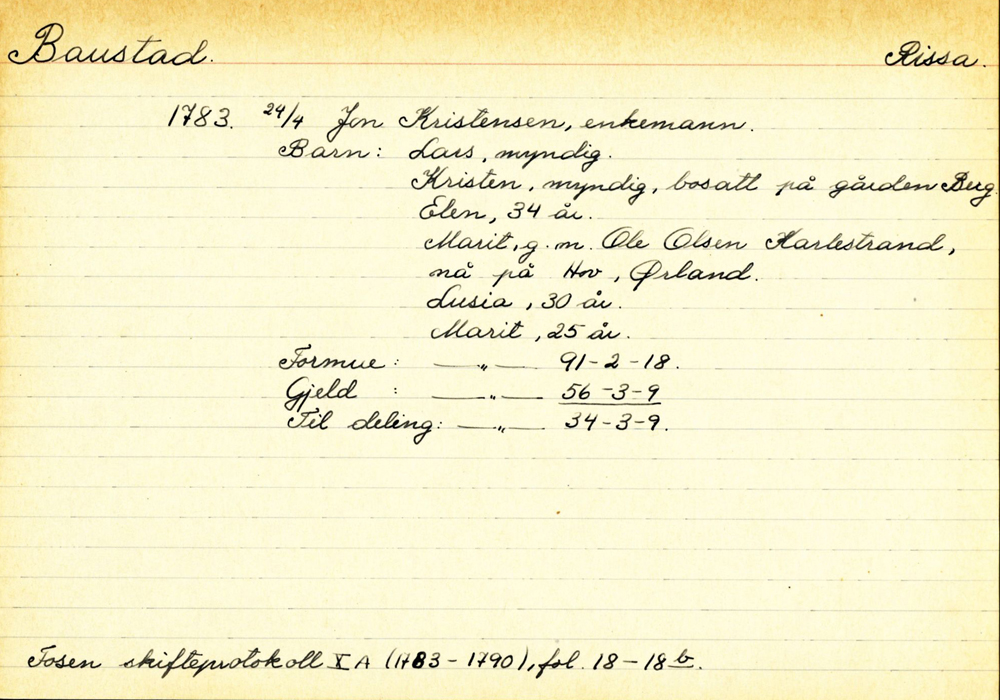 Baustad. Rissa.
1783. 24/4 Jon Kristensen, enkemann.
Barn: Lars, myndig.
Kristen, myndig, bosatt på gården Berg
Elen, 34 år.
Marit, g. m. Ole Olsen Karlestrand,
nå på Hov, Ørland.
Lusia, 30 år.
Marit, 25 år.
Formue: —„— 91-2-18.
Gjeld : —„— 56-3-9
Til deling: —„— 34-3-9.
Fosen skifteprotokoll X A (1783-1790), fol. 18-18 b.